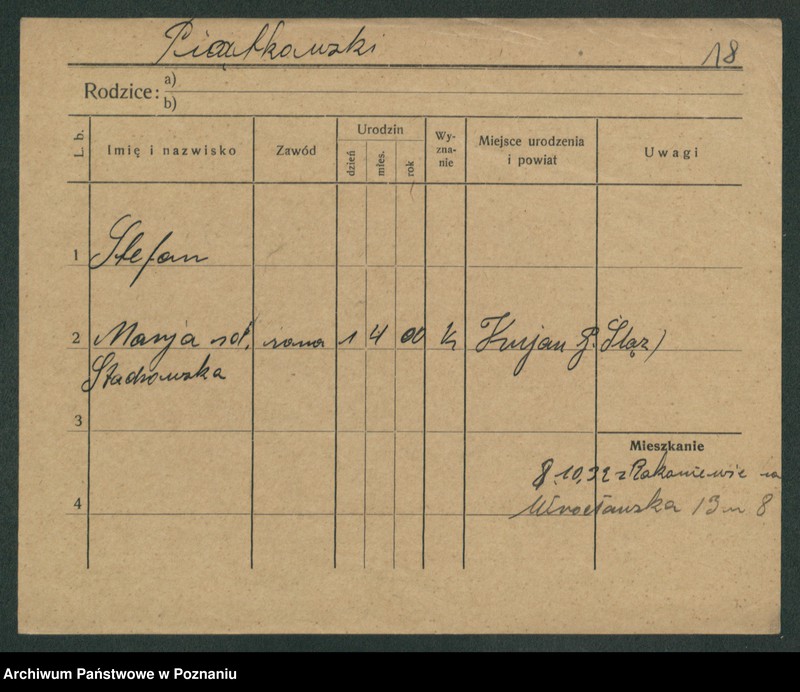 Piątkowski 18
Rodzice: a)
b)
L. b. Imię i nazwisko Zawód Urodzin dzień mies. rok Wyzna-nie Miejsce urodzenia i powiat Uwagi
1 Stefan
2 Marja żona 1 4 00 K
Stachowska
3
Mieszkanie
8.10.32 z Rakoniewic na
4 Wrocławska 13 m 8
Archiwum Państwowe w Poznaniu